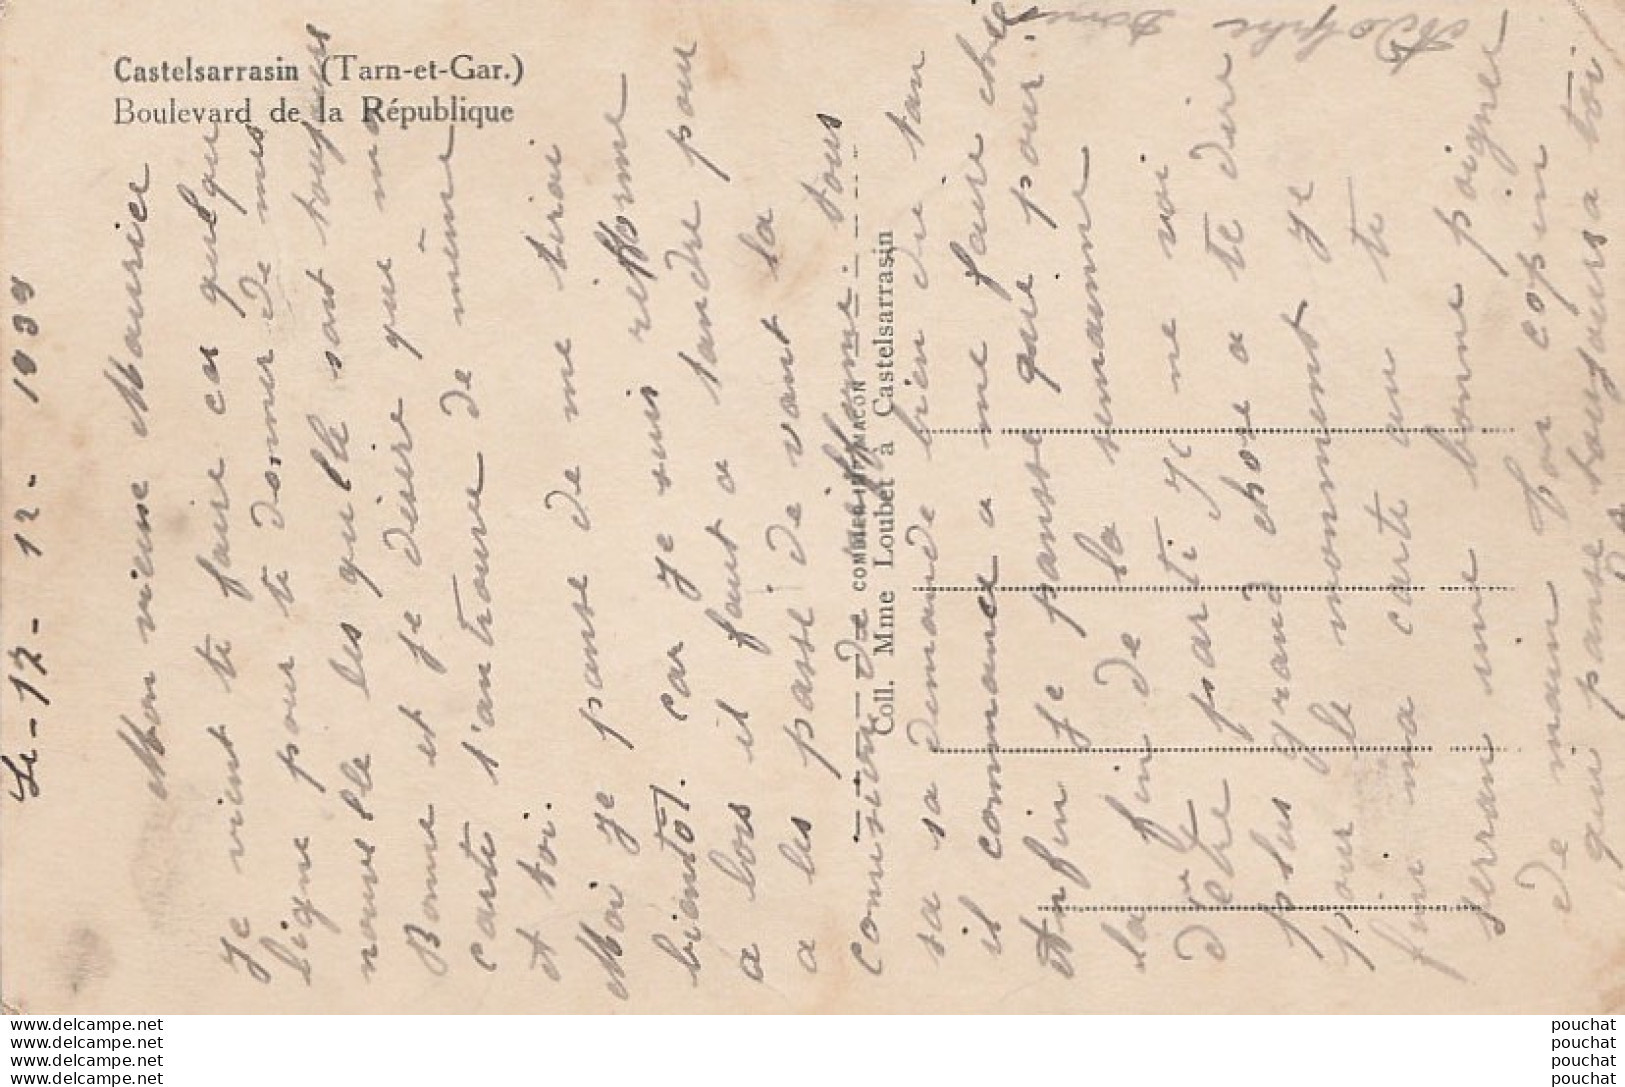 Castelsarrasin (Tarn-et-Gar.)
Boulevard de la République
Le - 17 - 12 - 1939
Mon vieux Maurice
Je vient te faire ces quelque
ligne pour te donner de mes
nouvelle les quelle sont toujours
Bonne et je désire que ma
carte t'en trouve de même
et toi.
Moi je panse de me tirai
bientôt. car je suis refforme
a lors il faut a tandre pour
a les passé de vant la
comision de refforme. tous
sa sa demande bien du tan
il commance a me faire chié
enfin je pansse que pour
la fin de la semaunne
d'être parti je ne voi
plus grand chose a te dire
pour le momment je
fini ma carte an te
serran une bonne poigner
de main Ton copin
qui panse toujours a toi
Adolphe
Coll. Mme Loubet à Castelsarrasin
www.delcampe.net
www.delcampe.net
www.delcampe.net
www.delcampe.net
pouchat
pouchat
pouchat
pouchat